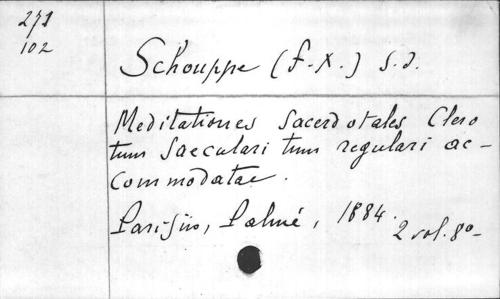 271
102
Schouppe (f.-x.) s.J.
Meditationes sacerdotales Clero
tum saeculari tum regulari ac-
commodatae.
Parisiis, Palmé, 1884.
2 vol. 8º-